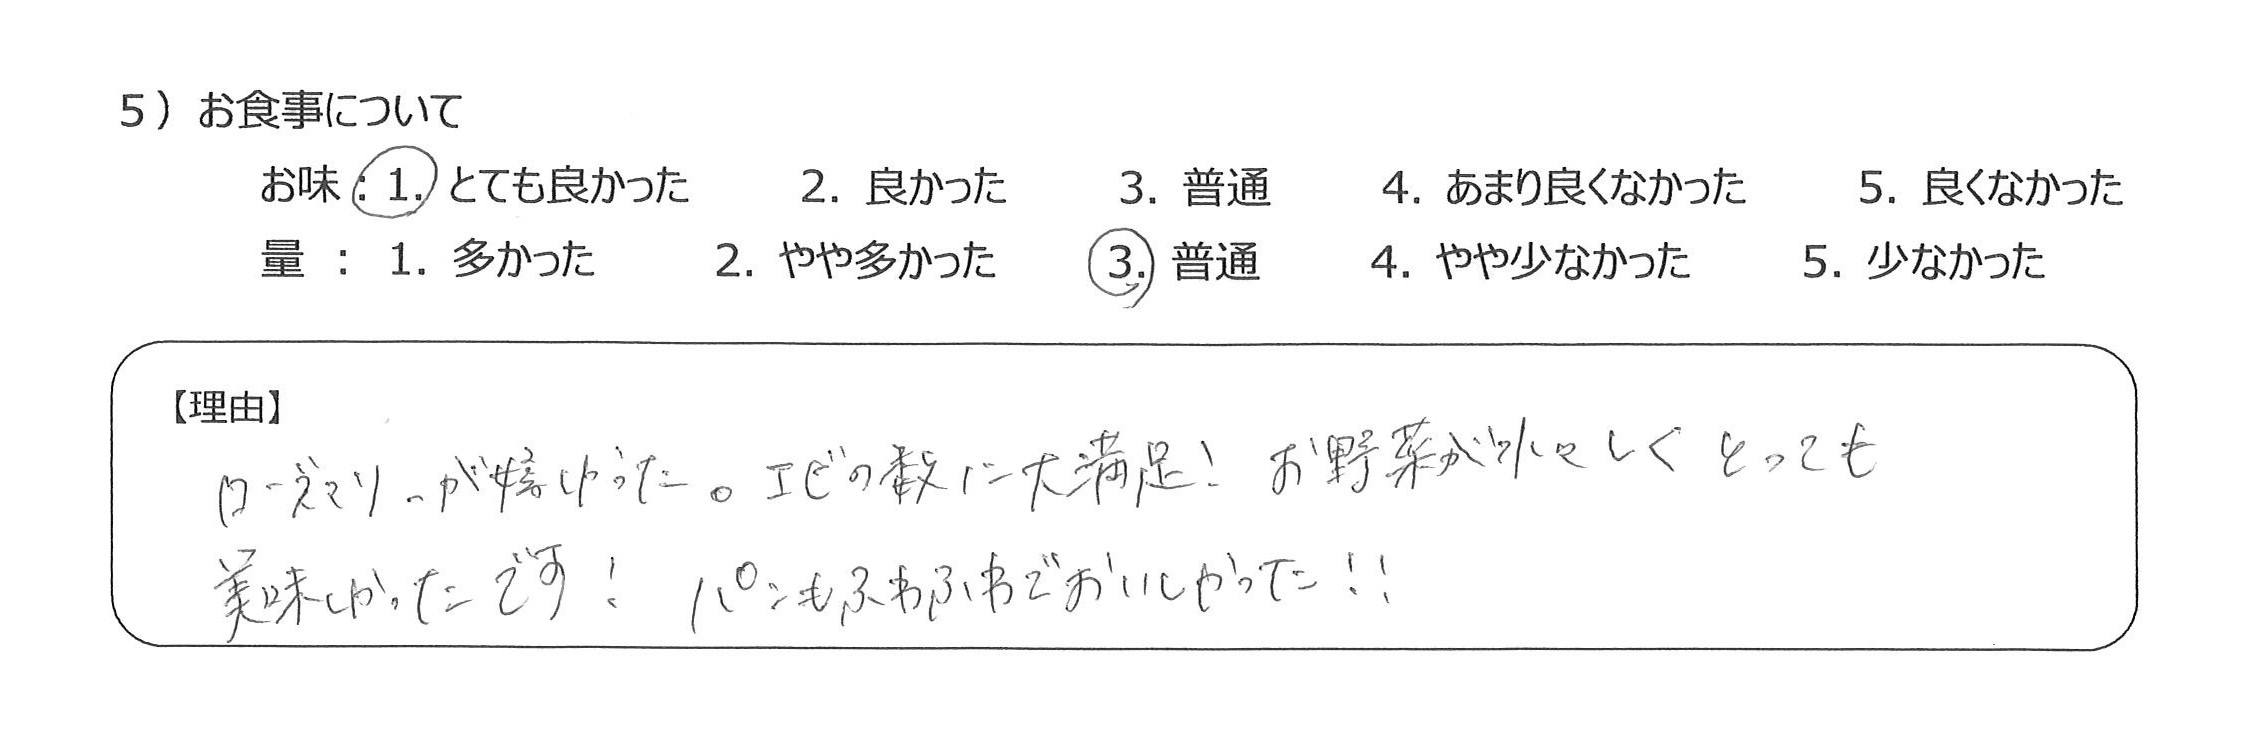 5）お食事について
お味：1. とても良かった 2. 良かった 3. 普通 4. あまり良くなかった 5. 良くなかった
量 ： 1. 多かった 2. やや多かった 3. 普通 4. やや少なかった 5. 少なかった
【理由】
ローズマリーが嬉しかった。エビの数に大満足！ お野菜が水々しくとっても
美味しかったです！ パンもふわふわでおいしかった！！